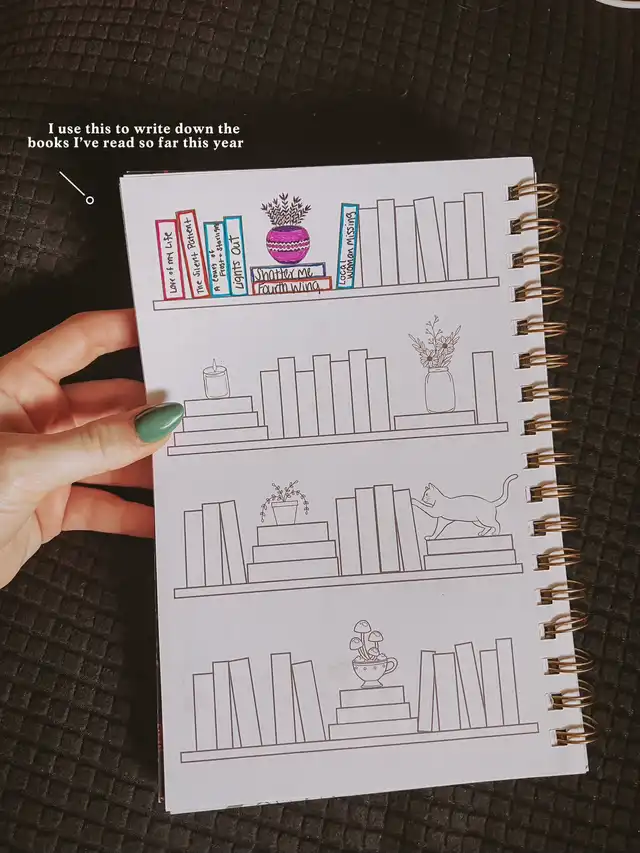 I use this to write down the
books I've read so far this year
Love of My Life
The Silent Patient
A Court of
Frost + Starlight
Lights Out
Shatter Me
Fourth Wing
Local
Woman Missing